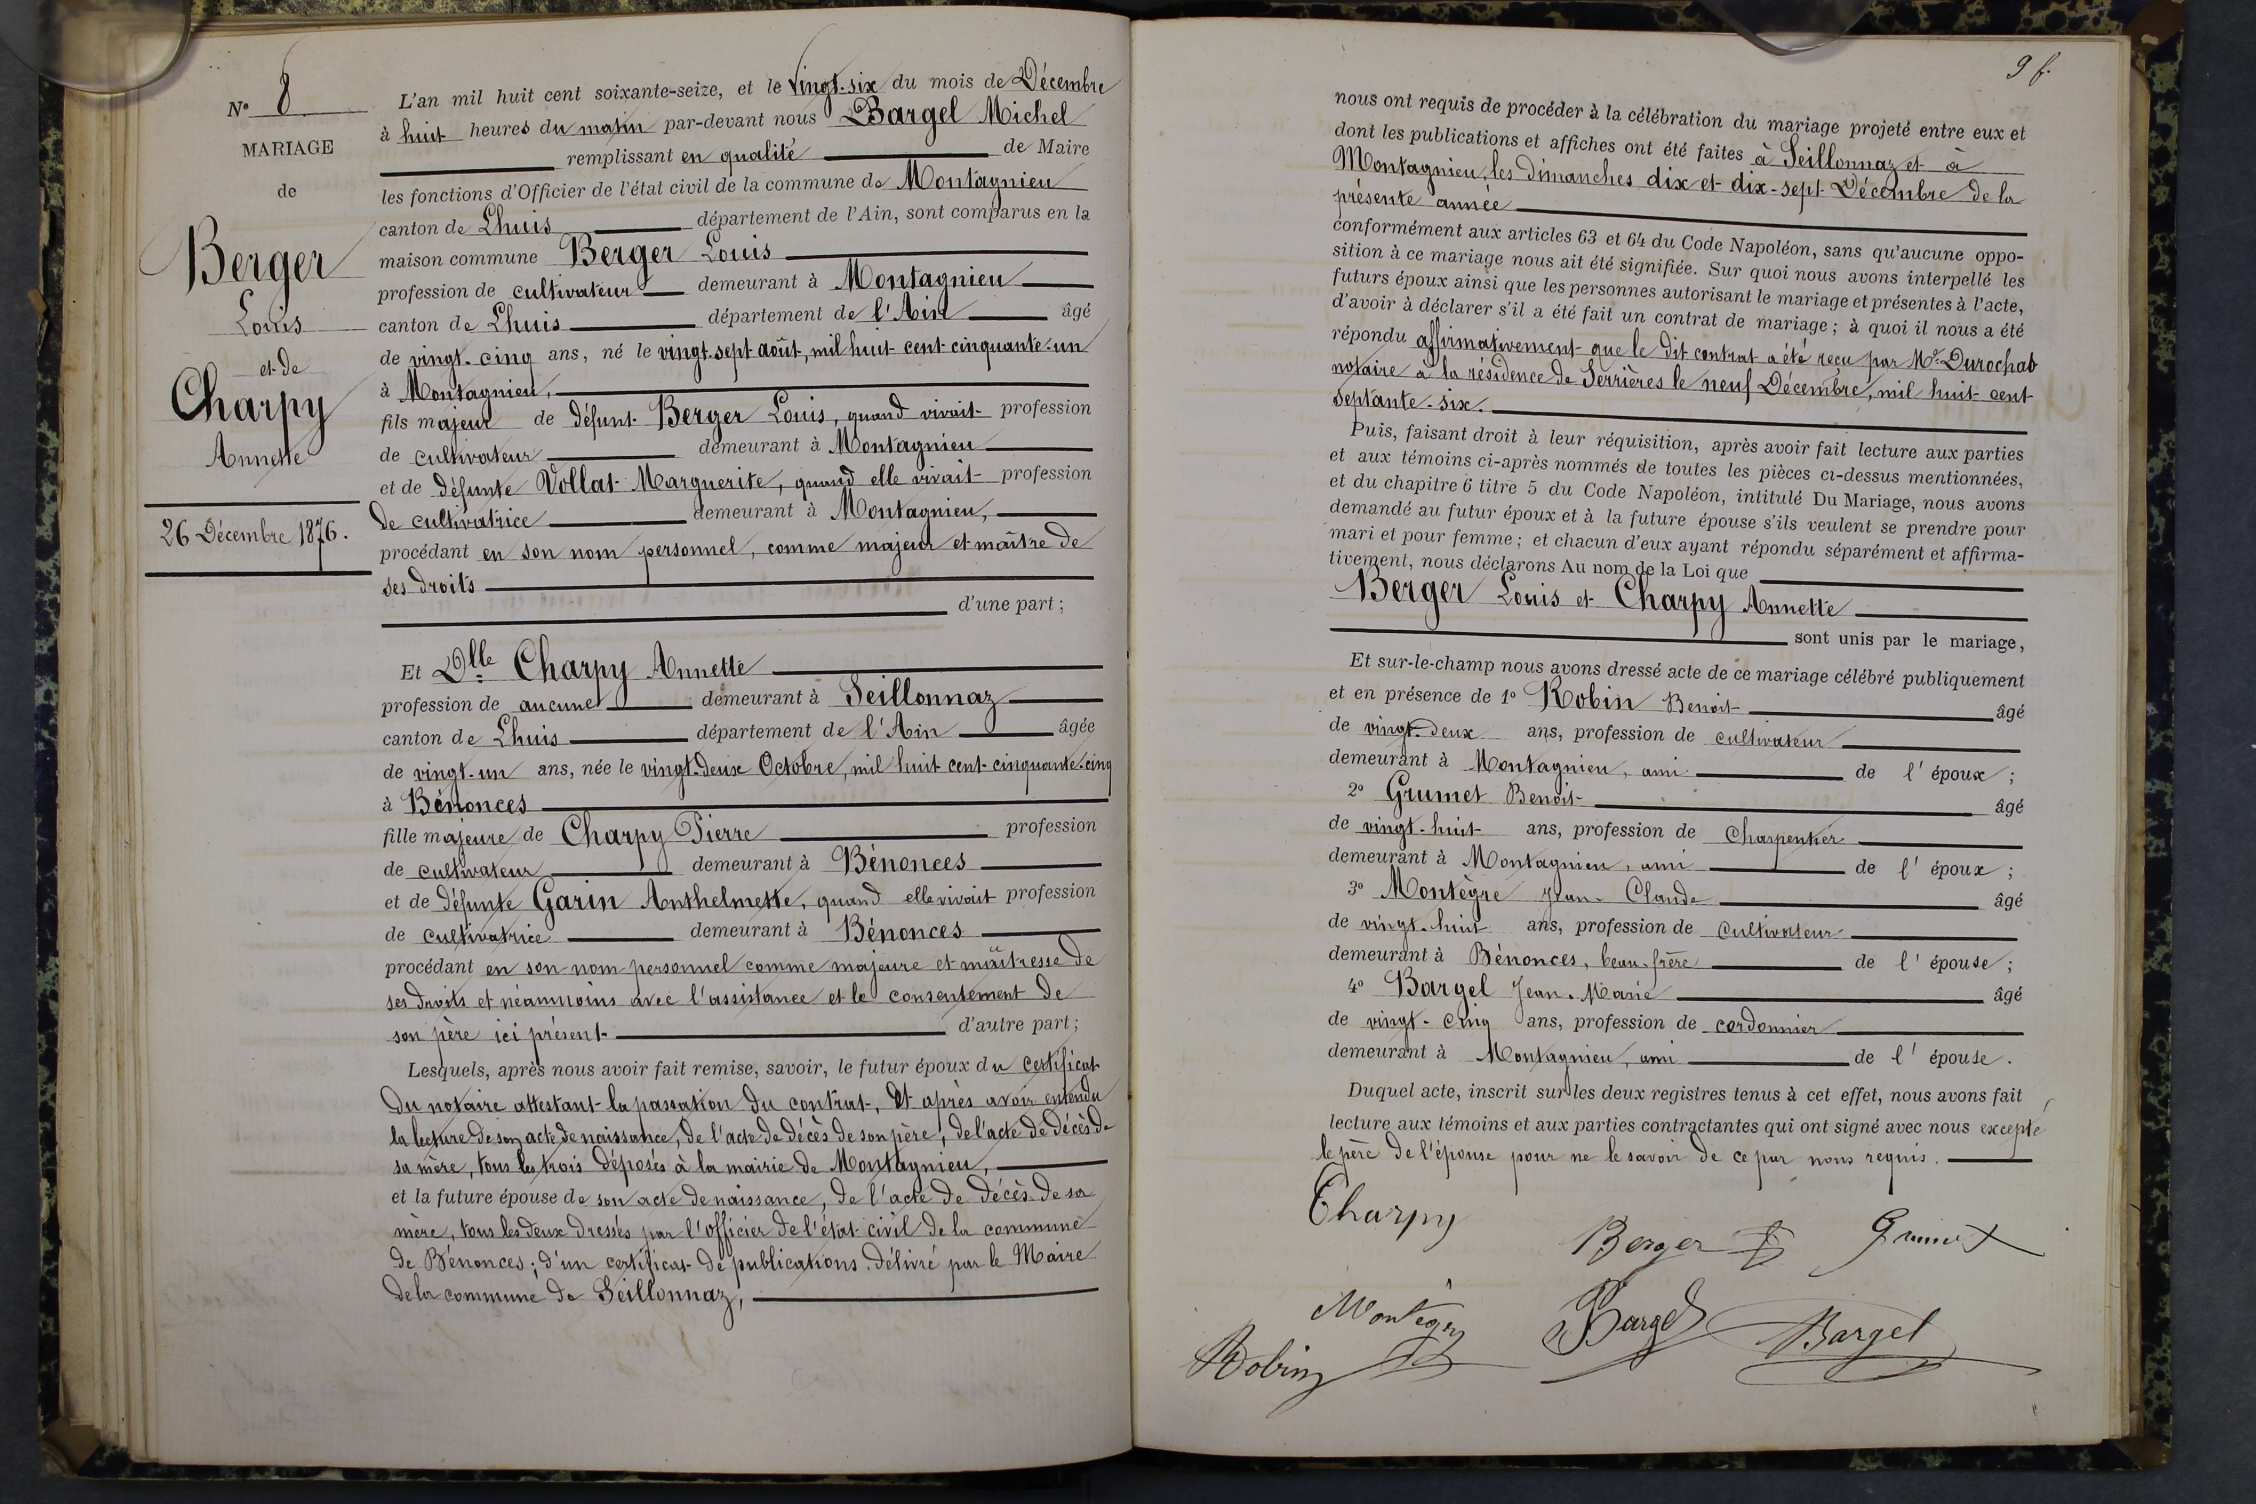 N° 8
MARIAGE
de
Berger
Louis
et de
Charpy
Annette
26 Décembre 1876.
L'an mil huit cent soixante-seize, et le vingt-six du mois de Décembre
à huit heures du matin par-devant nous Bargel Michel
remplissant en qualité de Maire
les fonctions d'Officier de l'état civil de la commune de Montagnieu
canton de Lhuis département de l'Ain, sont comparus en la
maison commune Berger Louis
profession de cultivateur demeurant à Montagnieu
canton de Lhuis département de l'Ain âgé
de vingt-cinq ans, né le vingt-sept août, mil huit cent cinquante-un
à Montagnieu,
fils majeur de défunt Berger Louis, quand vivait profession
de cultivateur demeurant à Montagnieu
et de défunte Vollat Marguerite, quand elle vivait profession
de cultivatrice demeurant à Montagnieu,
procédant en son nom personnel, comme majeur et maître de
ses droits
d'une part;
Et Dlle Charpy Annette
profession de aucune demeurant à Seillonnaz
canton de Lhuis département de l'Ain âgée
de vingt-un ans, née le vingt-deux Octobre, mil huit cent cinquante-cinq
à Bénonces
fille majeure de Charpy Pierre profession
de cultivateur demeurant à Bénonces
et de défunte Garin Anthelmette, quand elle vivait profession
de cultivatrice demeurant à Bénonces
procédant en son nom personnel comme majeure et maîtresse de
ses droits et néanmoins avec l'assistance et le consentement de
son père ici présent d'autre part;
Lesquels, après nous avoir fait remise, savoir, le futur époux du certificat
du notaire attestant la passation du contrat, et après avoir entendu
la lecture de son acte de naissance, de l'acte de décès de son père, de l'acte de décès de
sa mère, tous les trois déposés à la mairie de Montagnieu,
et la future épouse de son acte de naissance, de l'acte de décès de sa
mère, tous les deux dressés par l'officier de l'état civil de la commune
de Bénonces; d'un certificat de publications délivré par le Maire
de la commune de Seillonnaz,
9 f.
nous ont requis de procéder à la célébration du mariage projeté entre eux et
dont les publications et affiches ont été faites à Seillonnaz et à
Montagnieu, les dimanches dix et dix-sept Décembre de la
présente année
conformément aux articles 63 et 64 du Code Napoléon, sans qu'aucune oppo-
sition à ce mariage nous ait été signifiée. Sur quoi nous avons interpellé les
futurs époux ainsi que les personnes autorisant le mariage et présentes à l'acte,
d'avoir à déclarer s'il a été fait un contrat de mariage; à quoi il nous a été
répondu affirmativement que le dit contrat a été reçu par Me Durochat
notaire à la résidence de Serrières le neuf Décembre, mil huit cent
septante-six.
Puis, faisant droit à leur réquisition, après avoir fait lecture aux parties
et aux témoins ci-après nommés de toutes les pièces ci-dessus mentionnées,
et du chapitre 6 titre 5 du Code Napoléon, intitulé Du Mariage, nous avons
demandé au futur époux et à la future épouse s'ils veulent se prendre pour
mari et pour femme; et chacun d'eux ayant répondu séparément et affirma-
tivement, nous déclarons Au nom de la Loi que
Berger Louis et Charpy Annette
sont unis par le mariage,
Et sur-le-champ nous avons dressé acte de ce mariage célébré publiquement
et en présence de 1° Robin Benoit âgé
de vingt-deux ans, profession de cultivateur
demeurant à Montagnieu, ami de l'époux;
2° Grumet Benoit âgé
de vingt-huit ans, profession de Charpentier
demeurant à Montagnieu, ami de l'époux;
3° Montègre Jean-Claude âgé
de vingt-huit ans, profession de cultivateur
demeurant à Bénonces, beau-frère de l'épouse;
4° Bargel Jean-Marie âgé
de vingt-cinq ans, profession de cordonnier
demeurant à Montagnieu, ami de l'épouse.
Duquel acte, inscrit sur les deux registres tenus à cet effet, nous avons fait
lecture aux témoins et aux parties contractantes qui ont signé avec nous excepté
le père de l'épouse pour ne le savoir de ce par nous requis.
Charpy Berger Grumet
Montègre Bargel Bargel
Robin